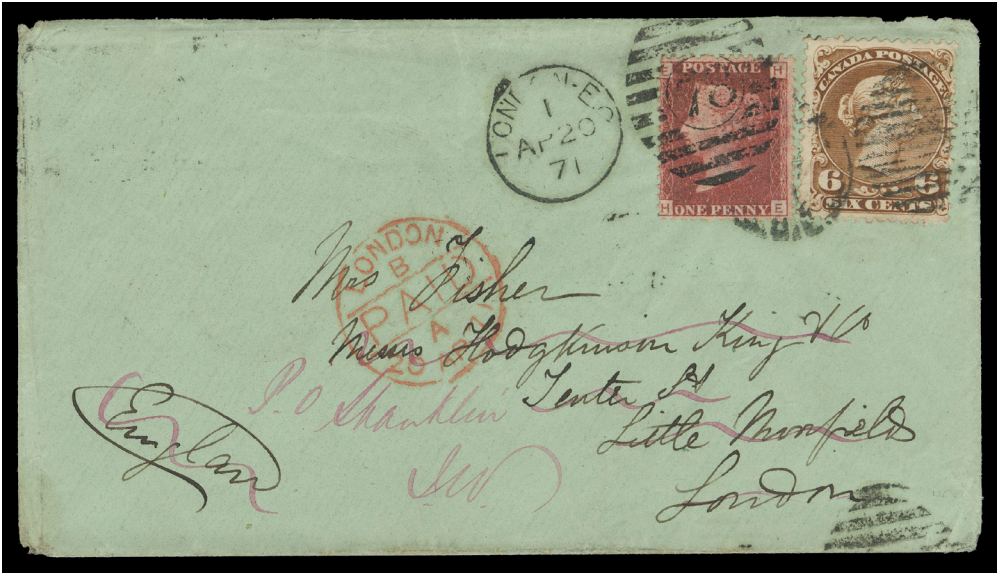 LONDON-E.C
1
AP 20
71
E H
POSTAGE
H ONE PENNY E
CANADA POSTAGE
6 6
SIX CENTS
LONDON
B
PAID
A
20
Mrs Fisher
Messrs Hodgkinson King & Co
Tenter St
Little Moorfields
London
England
P.O Shanklin
I W